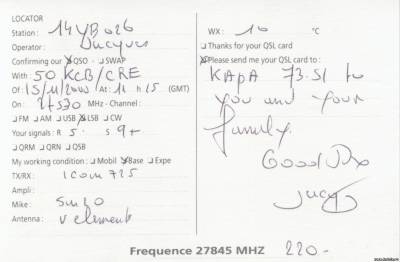 LOCATOR
Station : 14YB026
Operator :
Confirming our ☒ QSO - ☐ SWAP
With : 50 KCB/CRE
Of : 15/11/2000 / At : 11 h 15 (GMT)
On : 27530 MHz - Channel :
☐ FM ☐ AM ☐ USB ☒ LSB ☐ CW
Your signals : R 5 S 9+
☐ QRM ☐ QRN ☐ QSB
My working condition : ☐ Mobil ☒ Base ☐ Expe
TX/RX : Icom 725
Ampli :
Mike : SM20
Antenna : v element
WX : 10 °C
☐ Thanks for your QSL card
☒ Please send me your QSL card to :
KAPA 73.51 to
you and your
family.
Good DX
Frequence 27845 MHZ 220.-